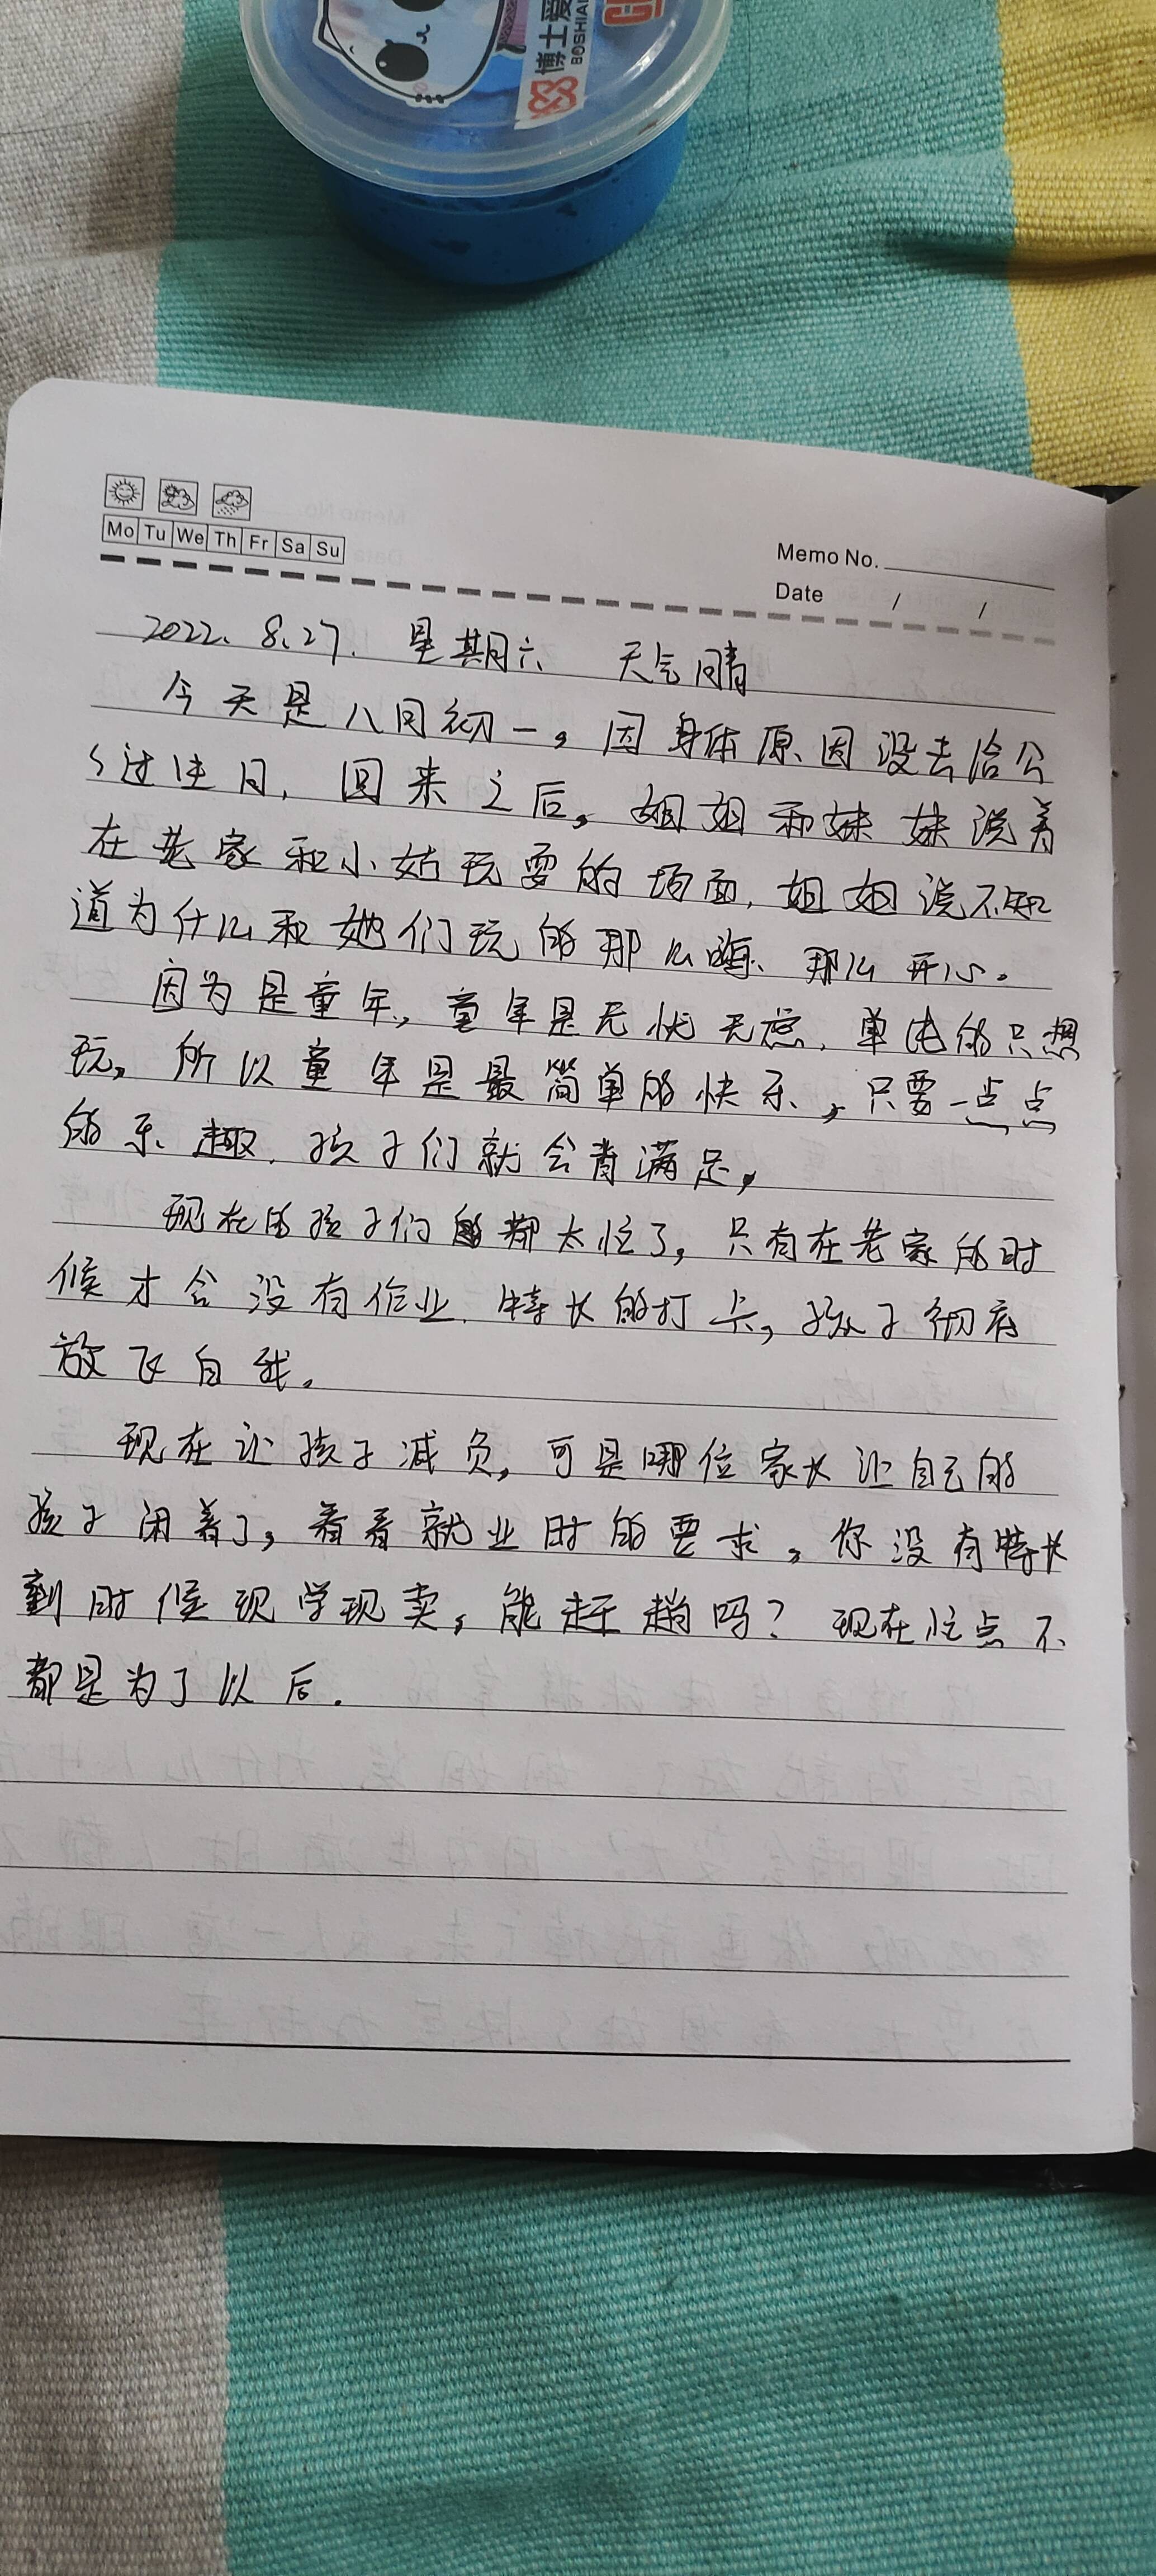 博士爱
BOSHIAI
Mo Tu We Th Fr Sa Su
Memo No.
Date / /
2022. 8.27. 星期六 天气晴
今天是八月初一，因身体原因没去给公
ㄑ过生日，回来之后，姐姐和妹妹说着
在老家和小姑玩耍的场面，姐姐说不知
道为什么和她们玩的那么嗨、那么开心。
因为是童年，童年是无忧无虑，单纯的只想
玩，所以童年是最简单的快乐，只要一点点
的乐趣，孩子们就会肯满足，
现在的孩子们都太忙了，只有在老家的时
候才会没有作业、特长的打卡，孩子彻底
放飞自我。
现在让孩子减负，可是哪位家长让自己的
孩子闲着了，看看就业时的要求，你没有特长
到时候现学现卖，能赶趟吗？现在忙点不
都是为了以后.